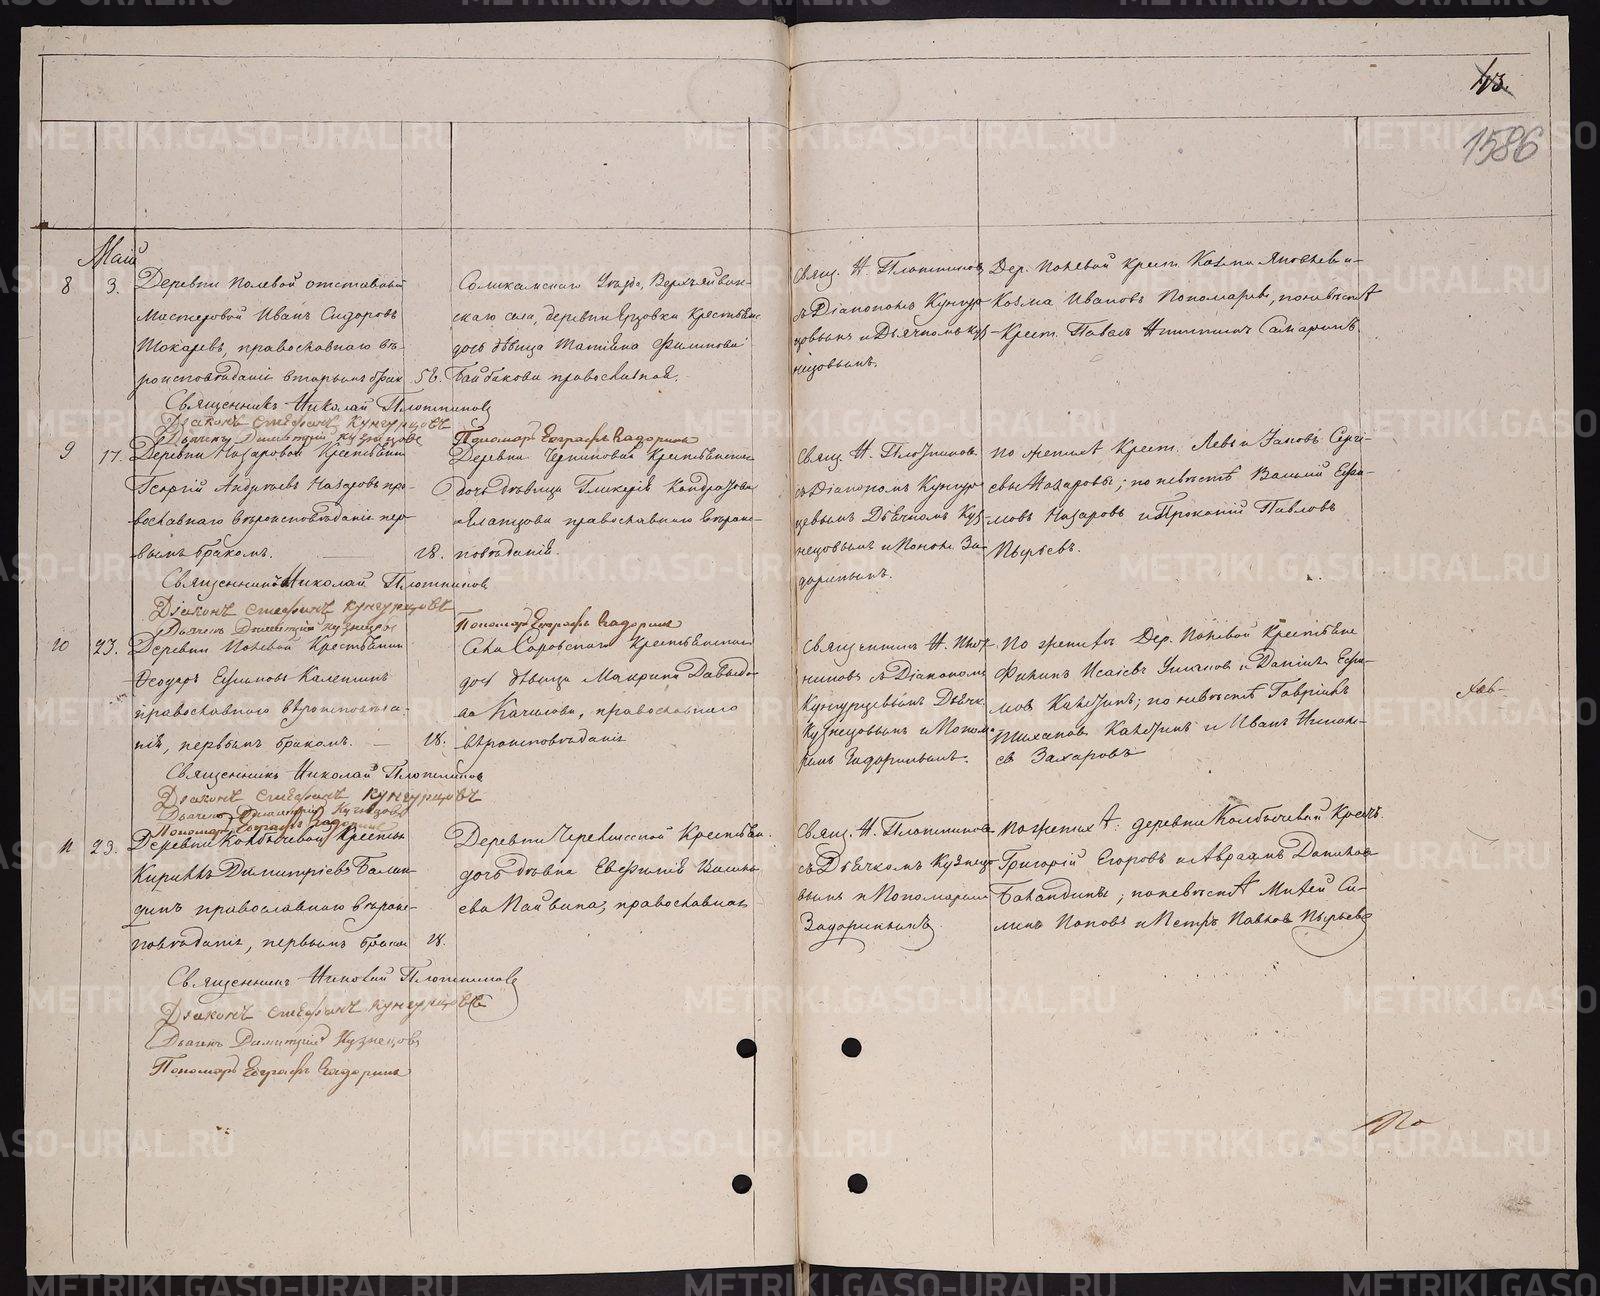 43.
1586
Май
8 3. Деревни Полевой отставный
мастеровой Иванъ Сидоровъ
Токаревъ, православнаго вѣ-
роисповѣданія вторымъ брак 56.
Соликамскаго Уѣзда, Верхъяйвин-
скаго села, деревни Ерзовки крестьянс
дочь дѣвица Татіана Филипова
Байбакова православная.
Свящ. Н. Плотниковъ
съ Діакономъ Кунгур
цовымъ и Дьячкомъ Куз
нецовымъ.
Дер. Полевой крест. Козма Яковлев и
Козма Ивановъ Пономаревъ, по невѣстѣ
Крест. Павелъ Никитинъ Самаринъ
Священникъ Николай Плотниковъ
Діаконъ Стефанъ Кунгурцовъ
Дьячекъ Димитрій Кузнецовъ
Пономарь Евграфъ Задоринъ
9 17. Деревни Назаровой Крестьянин
Георгій Андреевъ Назаровъ пра-
вославнаго вѣроисповѣданія пер-
вымъ бракомъ. 18.
Деревни Крестьянская
дочь дѣвица Гликерія Кондратова
православнаго вѣроис-
повѣданія.
Свящ. Н. Плотниковъ
съ Діакономъ Кунгур
цевымъ Дьячкомъ Куз
нецовымъ и Поном. За-
доринымъ.
По женихѣ Крест. Левъ и Іаковъ Серги-
евы Назаровы; по невѣстѣ Василій Ефи-
мовъ Назаровъ и Прокопій Павловъ
Пырьевъ.
Священникъ Николай Плотниковъ
Діаконъ Стефанъ Кунгурцовъ
Дьячекъ Димитрій Кузнецовъ
Пономарь Евграфъ Задоринъ
10 23. Деревни Полевой Крестьянин
Ѳеодоръ Ефимовъ Калегинъ
православнаго вѣроисповѣда-
нія, первымъ бракомъ. 18.
Села Крестьянская
дочь дѣвица Макрина Давыдо-
ва православнаго
вѣроисповѣданія
Священникъ Н. Плот-
никовъ съ Діакономъ
Кунгурцевымъ Дьячк.
Кузнецовымъ и Понома
ремъ Задоринымъ.
По женихѣ Дер. Полевой Крестьяне
Филипъ Исаіевъ и Даніилъ Ефи-
мовъ; по невѣстѣ Гавріилъ
Тихановъ и Иванъ
Захаровъ
Священникъ Николай Плотниковъ
Діаконъ Стефанъ Кунгурцовъ
Дьячекъ Димитрій Кузнецовъ
Пономарь Евграфъ Задоринъ
11 23. Деревни Комбичевой Крестьян
Кириллъ Димитріевъ Балан-
динъ православнаго вѣроис-
повѣданія, первымъ бракомъ 18.
Деревни Черемисской Крестьян.
дочь дѣвица Евфимія Василь-
ева Пайвина, православная
Свящ. Н. Плотниковъ
съ Дьячкомъ Кузнецо
вымъ и Пономаремъ
Задоринымъ.
По женихѣ: деревни Комбичевой Крестъ.
Григорій Егоровъ и Авраамъ Даниловъ
Баландины; по невѣстѣ Матѳей Си-
линъ Поповъ и Петръ Павловъ Пырьевъ
Священникъ Николай Плотниковъ
Діаконъ Стефанъ Кунгурцовъ
Дьячекъ Димитрій Кузнецовъ
Пономарь Евграфъ Задоринъ
METRIKI.GASO-URAL.RU